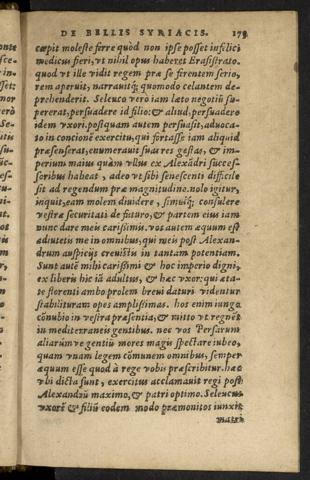 DE BELLIS SYRIACIS. 179
cœpit moleste ferre quòd non ipse posset infelici
medicus fieri, vt nihil opus haberet Erasistrato.
quod vt ille vidit regem præ se firentem serio,
rem aperuit, narrauitq; quomodo celantem de-
prehenderit. Seleuco verò iam læto negotiũ su-
pererat, persuadere id filio: & aliud, persuadere
idem vxori. postquam autem persuasit, aduoca-
to in concionẽ exercitu, qui fortasse iam aliquid
præsenserat, enumerauit suas res gestas, & im-
perium maius quàm vllus ex Alexãdri succes-
soribus habeat, adeo vt sibi senescenti difficile
sit ad regendum præ magnitudine. nolo igitur,
inquit, eam molem diuidere, simulq; consulere
vestræ securitati de futuro, & partem eius iam
nunc dare meis carissimis. vos autem æquum est
adiutetis me in omnibus, qui meis post Alexan-
drum auspicijs creuistis in tantam potentiam.
Sunt autẽ mihi carissimi & hoc imperio digni,
ex liberis hic iã adultus, & hæc vxor: qui æta-
te florenti ambo prolem breui daturi videntur
stabilituram opes amplissimas. hos enim iungo
cõnubio in vestra præsentia, & mitto vt regnẽt
in mediterraneis gentibus. nec vos Persarum
aliarúmve gentiũ mores magis spectare iubeo,
quam vnam legem cõmunem omnibus, semper
æquum esse quod à rege vobis præscribitur. hæc
vbi dicta sunt, exercitus acclamauit regi post
Alexandrũ maximo, & patri optimo. Seleucus
vxorẽ & filiũ eodem modo præmonitos iunxit
matri